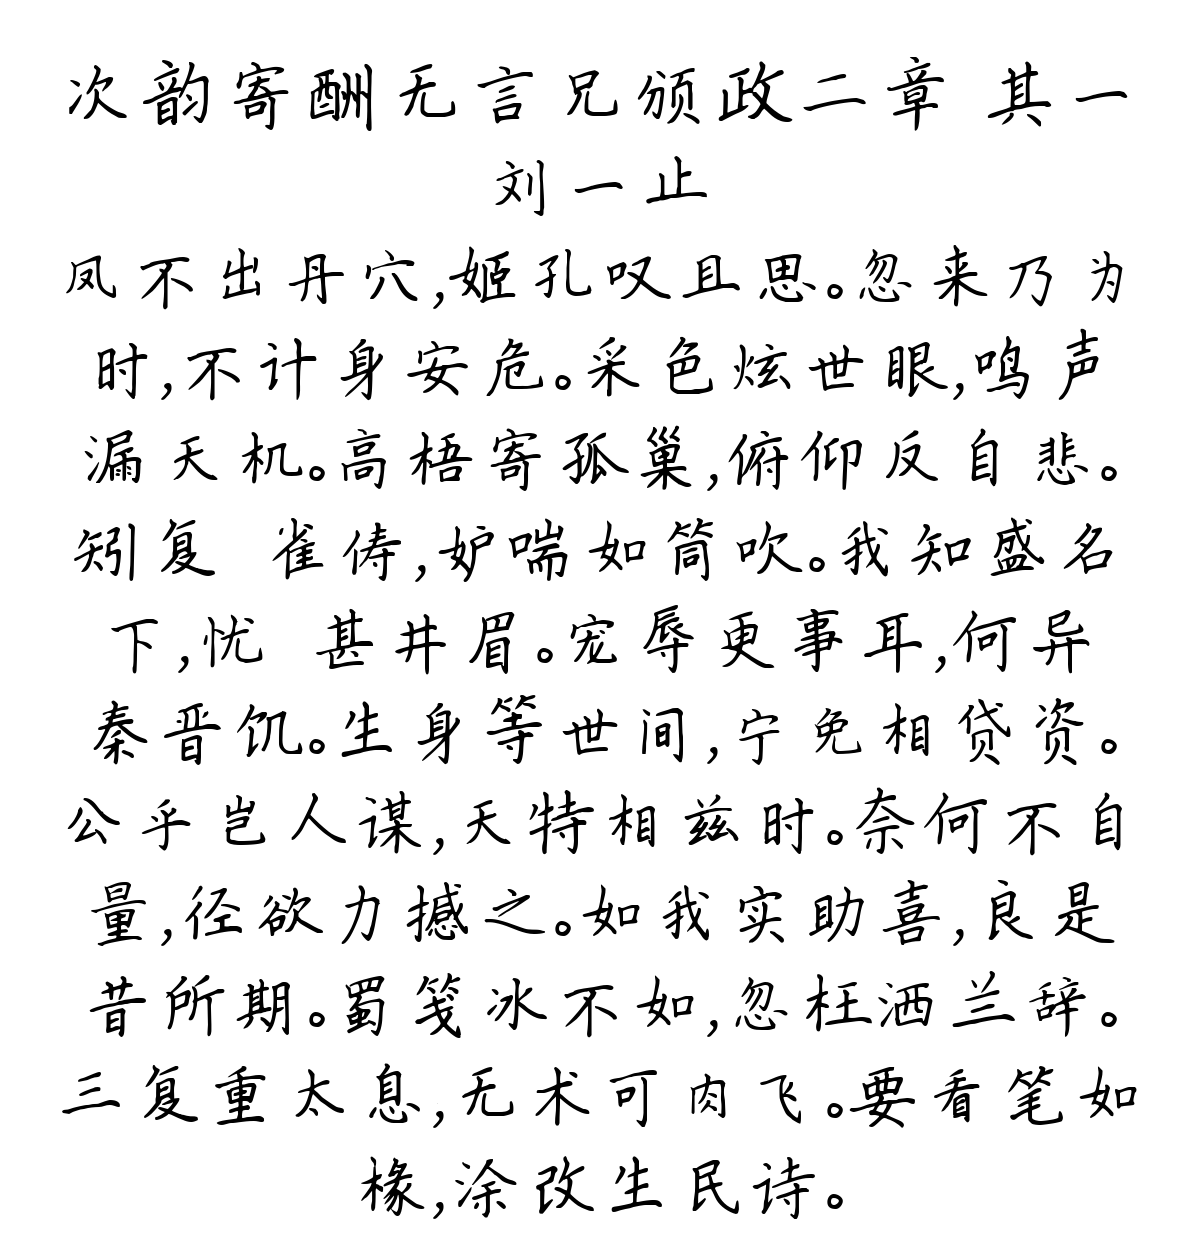 次韵寄酬无言兄颁政二章 其一
刘一止
凤不出丹穴,姬孔叹且思。忽来乃为
时,不计身安危。采色炫世眼,鸣声
漏天机。高梧寄孤巢,俯仰反自悲。
矧复 雀俦,妒喘如筒吹。我知盛名
下,忧 甚井眉。宠辱更事耳,何异
秦晋饥。生身等世间,宁免相贷资。
公乎岂人谋,天特相兹时。奈何不自
量,径欲力撼之。如我实助喜,良是
昔所期。蜀笺冰不如,忽枉洒兰辞。
三复重太息,无术可肉飞。要看笔如
椽,涂改生民诗。